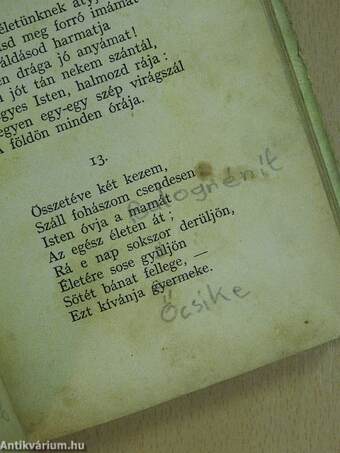 életünknek
meg forró imámat
áldásod harmatja
drága jó anyámat!
jót tán nekem szántál,
Isten, halmozd rája:
egy-egy szép virágszál
földön minden órája.
13.
Összetéve két kezem,
Száll fohászom csendesen
Isten óvja a mamát
Az egész életen át;
Rá e nap sokszor derüljön,
Életére sose gyüljön
Sötét bánat fellege, —
Ezt kívánja gyermeke.
Öcsike
Antikvárium.hu